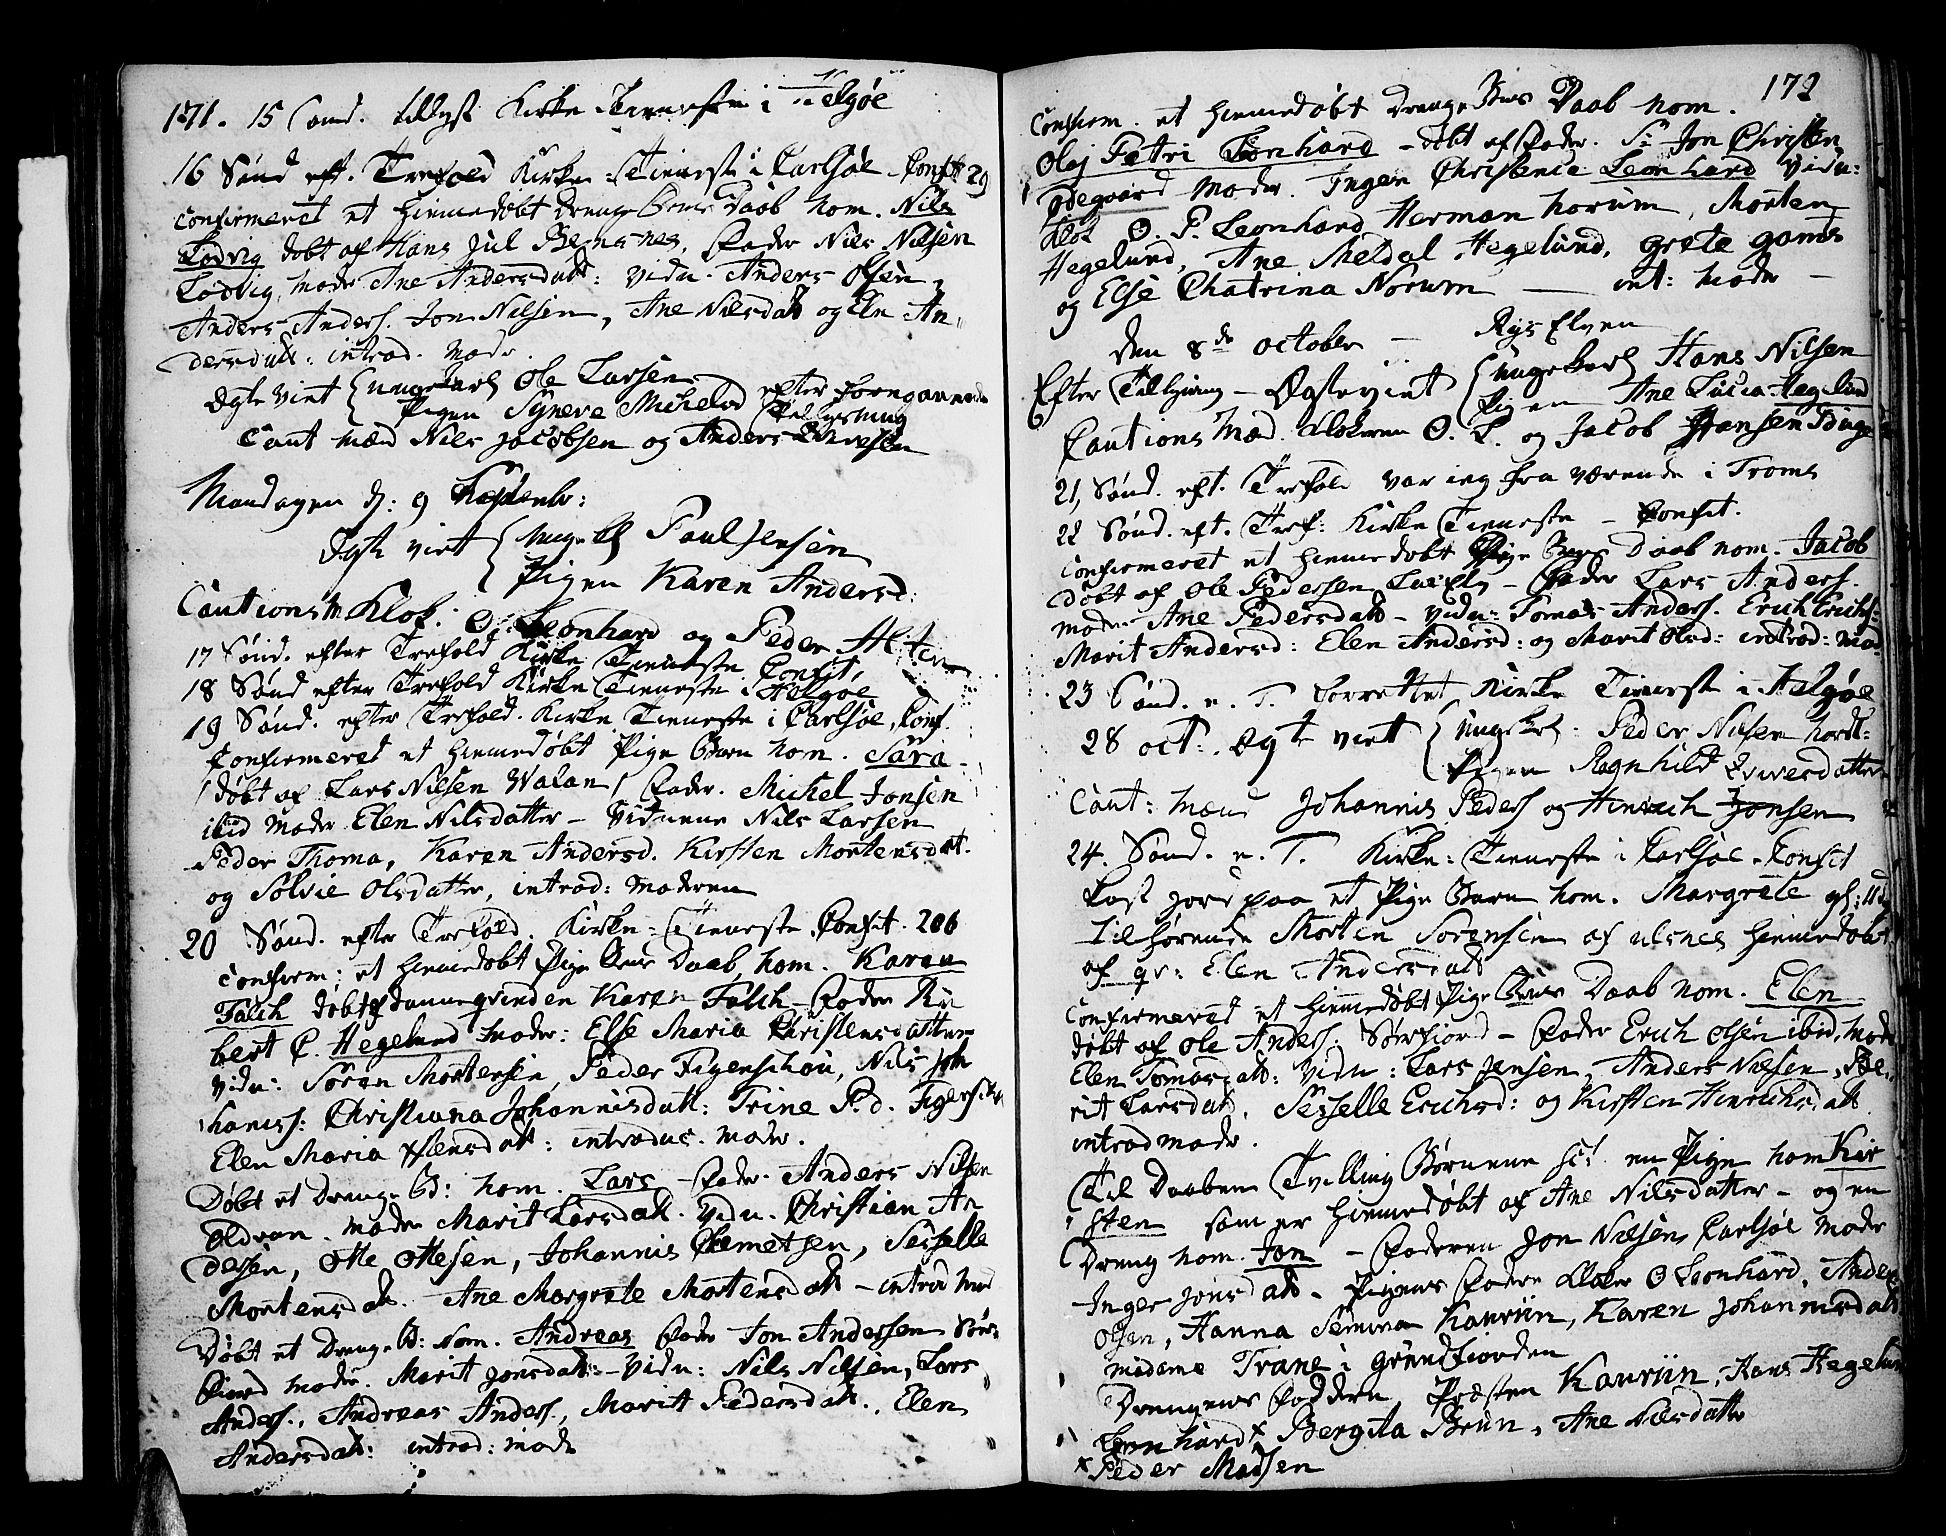 171. 15 Sønd. tillyst Kirke Tieneste i Helgøe
16 Sønd eft. Trefold Kirke Tieneste i Carlsøe Confit 29
confirmeret et hiemmedøbt Drenge Barns Daab nom. Nils
Lødvig døbt af Hans Jul Fader Nils Nilsen
Lødvig, Moder Ane Andersdatt: vidn. Anders Olsen
Anders Anders. Jon Nilsen, Ane Nilsdatt og Eln An
dersdatt: introd. Moder.
Ægte viet { Ungekarl Ole Larsen
Pigen Syneva Michelsd efter foregaaende
Tillysning
Caut Mæn Nils Jacobsen og Anders
Mandagen d: 9 Septembr:
Ægte viet { Ungekl Paul Jensen
Pigen Karen Andersd:
Cautions M Klok: O. Leonhard og Peder
17 Sønd. efter Trefold Kirke Tieneste Confit,
18 Sønd efter Trefold Kirke Tieneste i Helgøe
19 Sønd. efter Trefold. Kirke Tieneste i Carlsøe, Conf.
Confirmeret et hiemmedøbt Pige Barn nom. Sara
/ døbt af Lars Nilsen Walan / Fader. Michel Jonsen
ibid Moder Elen Nilsdatter – Vidnene Nils Larsen
Peder Thoma, Karen Andersd. Kirsten Mortensdat.
og Sølvie Olsdatter, introd: Moderen
20 Sønd. efter Trefold. Kirke Tieneste Confit. 206
confirm: et hiemmedøbt Pige Barns Daab, nom. Karen
Falch døbt af Dannequinden Karen Falch – Fader Ru
bert C. Hegelund Moder: Else Maria Christensdatter
vidn: Søren Mortensen, Peder Figenschou, Nils Joh
haniss: Christianna Johannisdatt: Trine P.d. Figensch
Elen Maria Hansdatt: introduc. Moder.
Døbt et Drenge B: nom. Lars – Fader Anders Nilsen
Moder Marit Larsdatt. Vidn. Christian An
dersen, Otte Ottesen, Johannis Clemetsen, Seselle
Mortensdatt. Ane Margrete Mortensdatt – introd Mod
Døbt et Drenge B: Nom. Andreas Fader Jon Andersen Sør
fiord Moder. Marit Jonsdatt: – Vidn: Nils Nilsen, Lars
Anders., Andreas Anders., Marit Pedersdatt., Elen
Andersdatt: introd: Mode
172
Confirm. et hiemmedøbt Drenge Barns Daab nom.
Olaj Petri Leonhard – døbt af Fader. Sr Jon Christen
Ødegaard Moder. Inger Christence Leonhard Vidn:
Klok O. P. Leonhard, Herman Norum, Morten
Hegelund, Ane Meldal Hegelund, Grete
og Else Chatrina Norum — int: Moder –
Den 8de October – Rys Elven
Efter Tillysning – Ægteviet { Ungekarl Hans Nilsen
Pigen Ane Lucia Hegelund
Cautions Mæd. Klokeren O. L. og Jacob Hansen
21, Sønd. eft. Trefold var ieg fra værende i Troms
22 Sønd. eft. Tref: Kirke Tieneste – Confit.
confirmeret et hiemmedøbt Barns Daab nom. Jacob
døbt af Ole Pedersen – Fader Lars Anders.
Moder Ane Pedersdatt – vidn: Tomas Anders. Erich Erichs:
Marit Andersd: Elen Andersd: og Marit Olsd: introd: Mod.
23 Sønd. e. T. forrettet Kirke Tieneste i Helgøe
28 oct:. Ægte viet { Ungekl: Peder Nilsen
Pigen Ragnhild Iversdatter
Caut: Mænd Johannis Peders og Hinrich Jonsen
24. Sønd. e. T. Kirke: Tieneste i Carlsøe. Confit
Kast Jord paa et Pige Barn nom. Margrete gl: 11
tilhørende Morten Sørensen af hiemmedøbt
af qv: Elen Andersdatt
Confirmered et hiemmedøbt Pige Barns Daab nom. Elen
døbt af Ole Anders: Sørfiord – Fader Erich Olsen ibid, Mode
Elen Tomasdatt: Vidn: Lars Jensen, Anders Nilsen,
rit Larsdatt, Seselle Erichsd: og Kirsten Hinrichsdatt
introd Moder.
Til Daaben Tvilling Børnene en Pige nom Kir
sten som er hiemmedøbt af Ane Nilsdatter – og en
Dreng nom. Jon – Faderen Jon Nilsen, Carlsøe Moder
Inger Jonsdatt – Pigens Faddere Klokr O Leonhard, Anders
Olsen, Hanna Semina Kauriin, Karen Johannisdatt
Madame Trane i Grundfiorden
Drengens Faddere Præsten Kauriin, Hans Hegelund
Leonhard x Bergita Brun, Ane Nilsdatter
x Peder Madsen